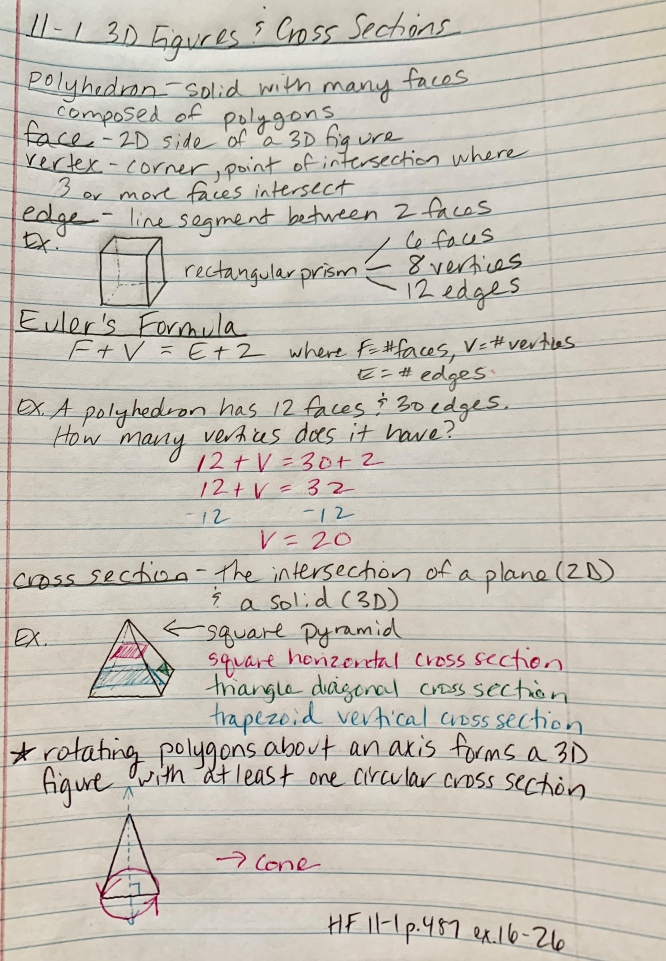 11-1 3D Figures & Cross Sections
polyhedron - solid with many faces
composed of polygons
face - 2D side of a 3D figure
vertex - corner, point of intersection where
3 or more faces intersect
edge - line segment between 2 faces
Ex.
6 faces
rectangular prism
8 vertices
12 edges
Euler's Formula
F + V = E + 2 where F = # faces, V = # vertices
E = # edges.
Ex. A polyhedron has 12 faces & 30 edges.
How many vertices does it have?
12 + V = 30 + 2
12 + V = 32
-12 -12
V = 20
cross section - the intersection of a plane (2D)
& a solid (3D)
Ex.
square pyramid
square horizontal cross section
triangle diagonal cross section
trapezoid vertical cross section
* rotating polygons about an axis forms a 3D
figure with at least one circular cross section
→ cone
HF 11-1 p.487 ex.16-26